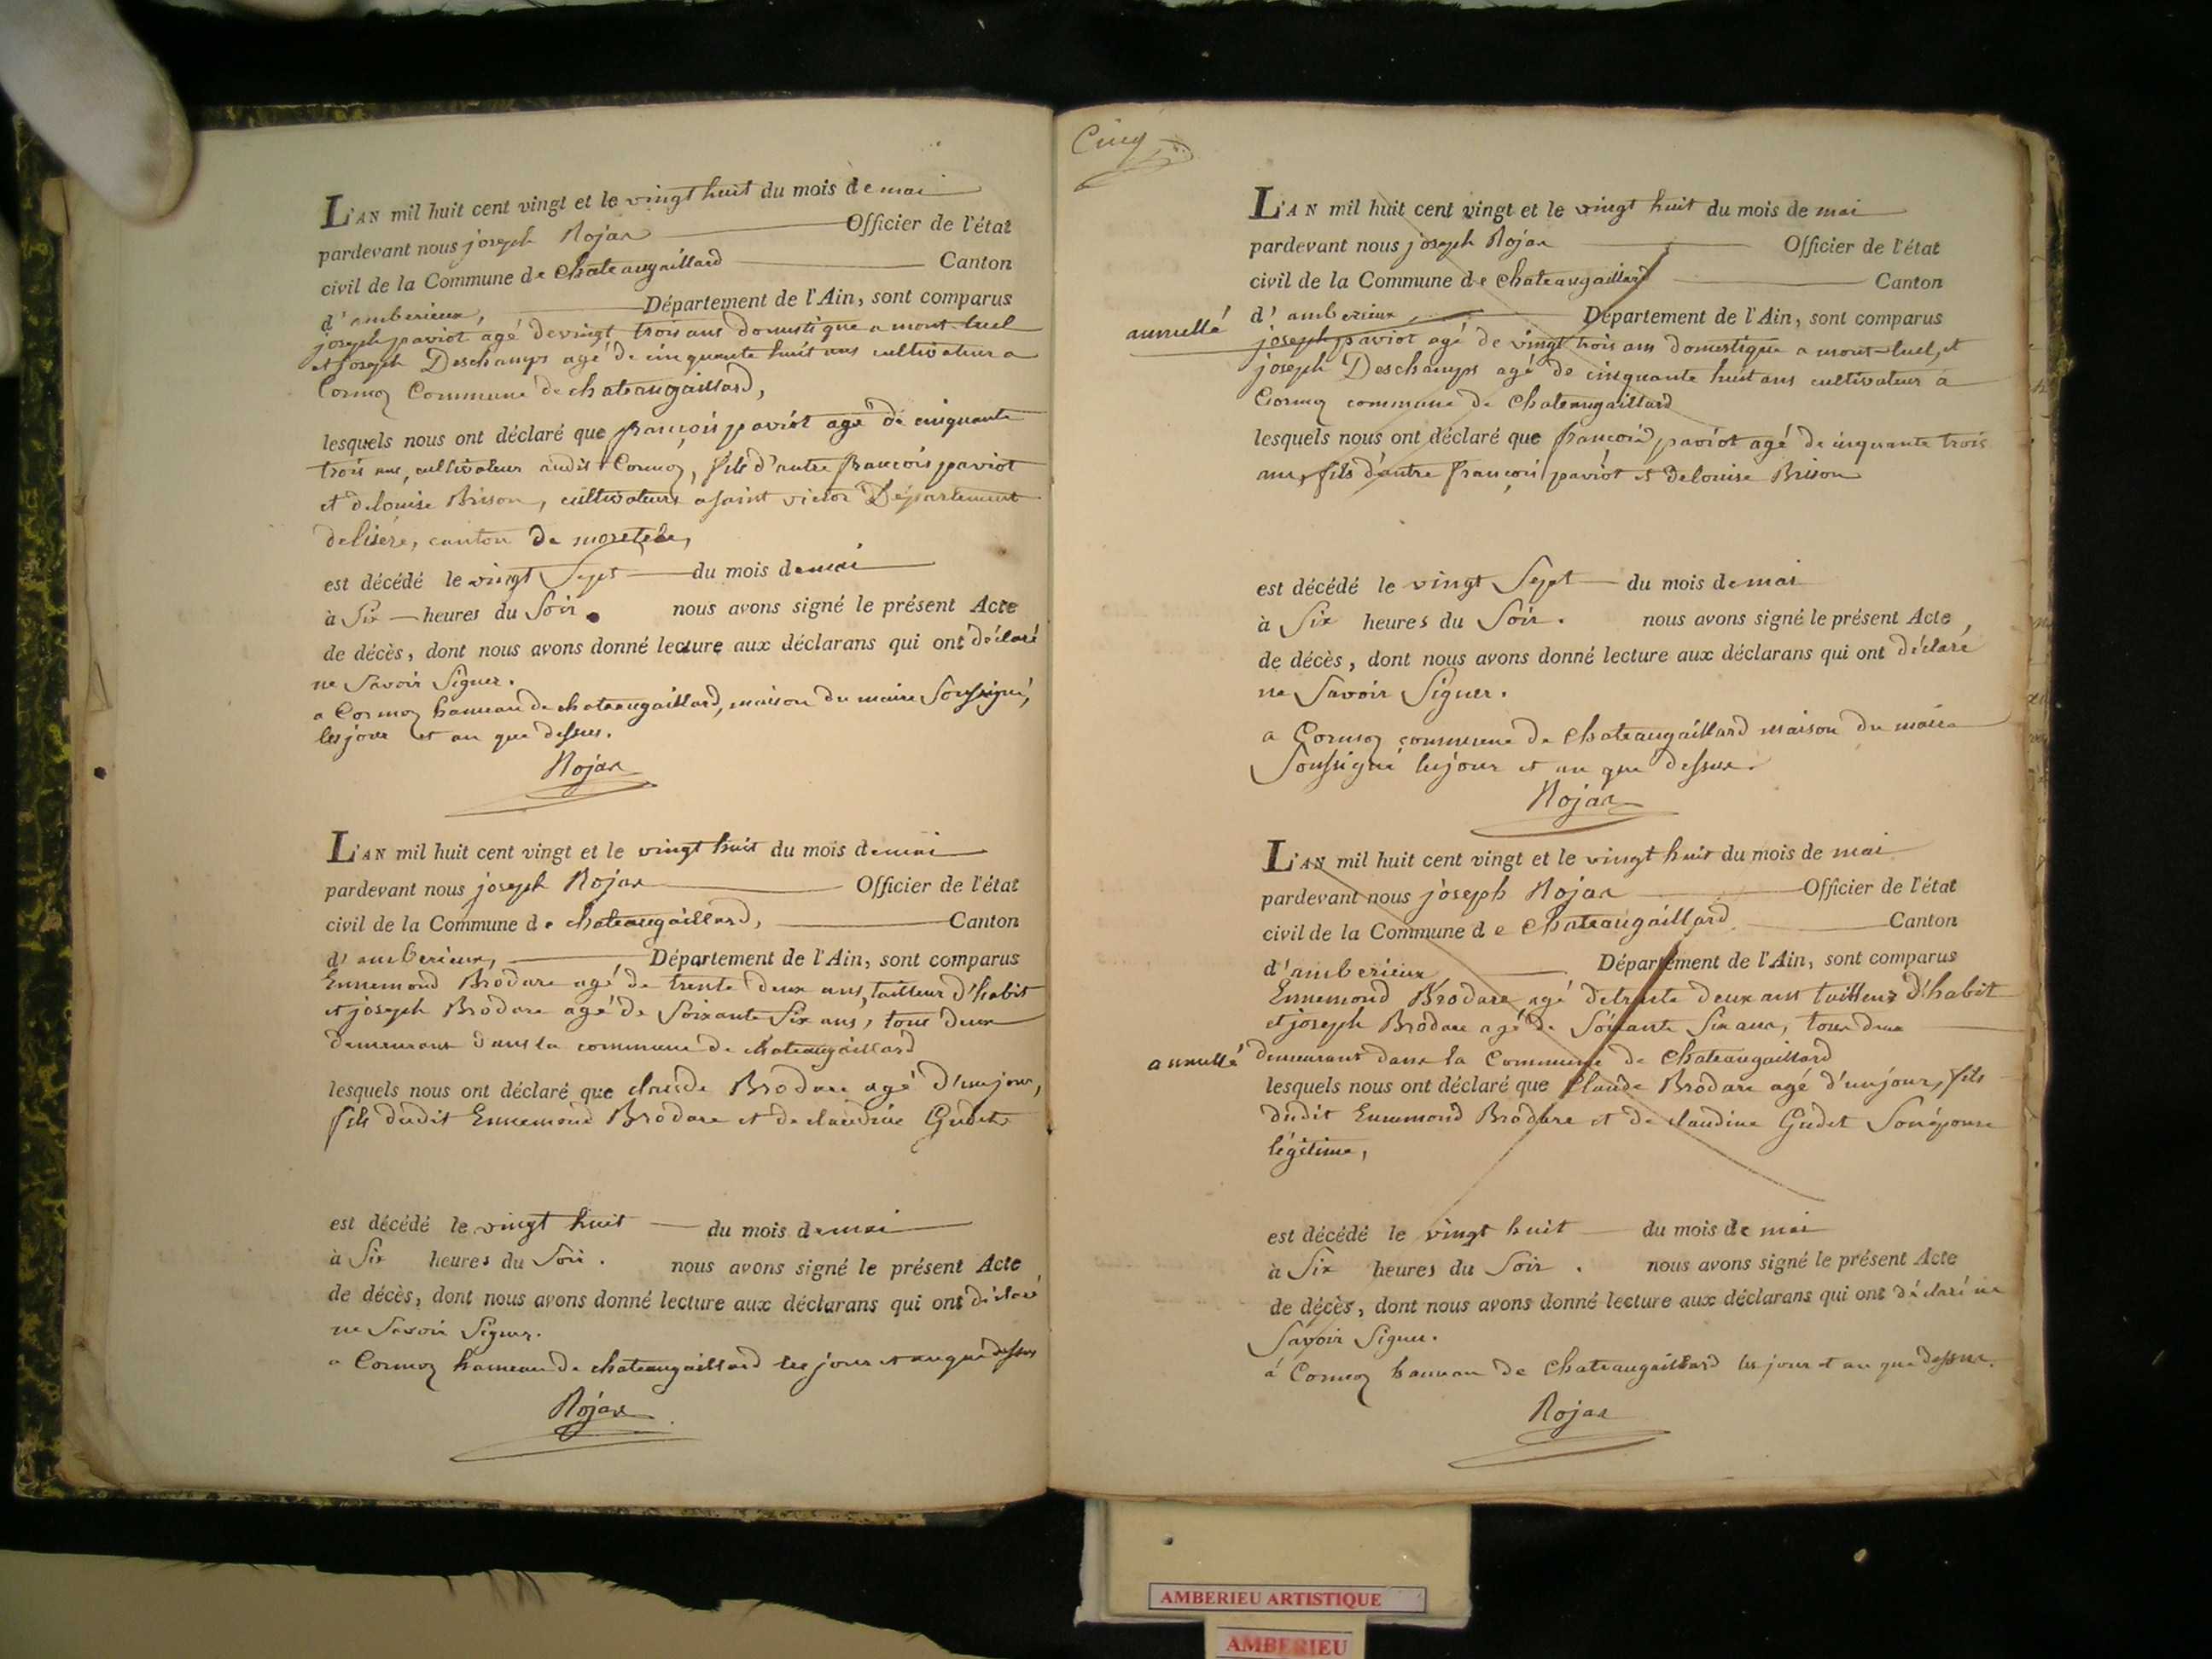 L'AN mil huit cent vingt et le vingt huit du mois de mai
pardevant nous joseph Rojas Officier de l'état
civil de la Commune de chateaugaillard Canton
d'amberieux, Département de l'Ain, sont comparus
joseph paviot agé de vingt trois ans domestique a mont-luel
et joseph Deschamps agé de cinquante huit ans cultivateur a
Cormoz Commune de chateaugaillard,
lesquels nous ont déclaré que françois paviot agé de cinquante
trois ans, cultivateur audit Cormoz, fils d'autre françois paviot
et de louise Brison, cultivateurs a saint victor Département
de lisére, canton de
est décédé le vingt Sept du mois de mai
à Six heures du Soir. nous avons signé le présent Acte
de décès, dont nous avons donné lecture aux déclarans qui ont déclaré
ne Savoir Signer.
a Cormoz hameau de chateaugaillard, maison du maire Soussigné,
les jour et an que dessus.
Rojas
L'AN mil huit cent vingt et le vingt huit du mois de mai
pardevant nous joseph Rojas Officier de l'état
civil de la Commune de chateaugaillard, Canton
d'amberieux, Département de l'Ain, sont comparus
Ennemond Brodare agé de trente deux ans, tailleur d'habit
et joseph Brodare agé de Soixante Six ans, tous deux
demeurant dans la commune de chateaugaillard
lesquels nous ont déclaré que claude Brodare agé d'un jour,
fils dudit Ennemond Brodare et de claudine Gudet
est décédé le vingt huit du mois de mai
à Six heures du Soir. nous avons signé le présent Acte
de décès, dont nous avons donné lecture aux déclarans qui ont déclaré
ne Savoir Signer.
a Cormoz hameau de chateaugaillard les jour et an que dessus
Rojas
Cinq
L'AN mil huit cent vingt et le vingt huit du mois de mai
pardevant nous joseph Rojas Officier de l'état
civil de la Commune de chateaugaillard Canton
d'amberieux, Département de l'Ain, sont comparus
annullé
joseph paviot agé de vingt trois ans domestique a mont-luel, et
joseph Deschamps agé de cinquante huit ans cultivateur a
Cormoz commune de Chateaugaillard
lesquels nous ont déclaré que françois paviot agé de cinquante trois
ans, fils d'autre françois paviot et de louise Brison
est décédé le vingt Sept du mois de mai
à Six heures du Soir. nous avons signé le présent Acte,
de décès, dont nous avons donné lecture aux déclarans qui ont déclaré
ne Savoir Signer.
a Cormoz commune de Chateaugaillard maison du maire
Soussigné les jour et an que dessus.
Rojas
L'AN mil huit cent vingt et le vingt huit du mois de mai
pardevant nous joseph Rojas Officier de l'état
civil de la Commune de Chateaugaillard Canton
d'amberieux Département de l'Ain, sont comparus
Ennemond Brodare agé de trente deux ans tailleur d'habit
et joseph Brodare agé de Soixante Six ans, tous deux
annullé demeurant dans la Commune de Chateaugaillard
lesquels nous ont déclaré que Claude Brodare agé d'un jour, fils
dudit Ennemond Brodare et de claudine Gudet Son épouse
légitime,
est décédé le vingt huit du mois de mai
à Six heures du Soir. nous avons signé le présent Acte
de décès, dont nous avons donné lecture aux déclarans qui ont déclaré ne
Savoir Signer.
à Cormoz hameau de Chateaugaillard les jour et an que dessus.
Rojas
AMBERIEU ARTISTIQUE
AMBERIEU